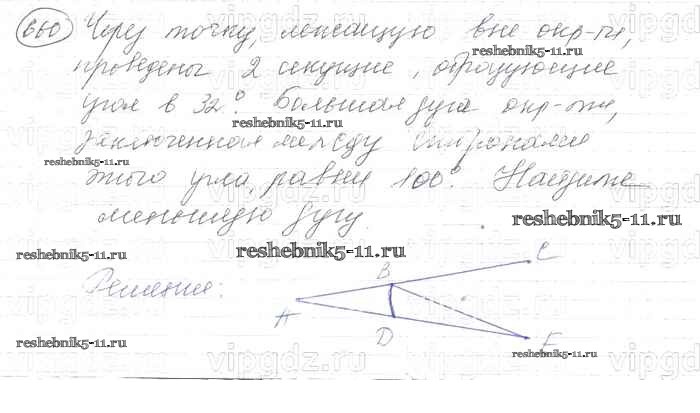 660 Через точку, лежащую вне окр-ти,
reshebnik5-11.ru
проведены 2 секущие, образующие
угол в 32°. Большая дуга окр-ти,
reshebnik5-11.ru
заключенная между сторонами
reshebnik5-11.ru
этого угла, равна 100°. Найдите
меньшую дугу.
reshebnik5-11.ru
reshebnik5-11.ru
reshebnik5-11.ru
Решение:
B
C
A
D
E
reshebnik5-11.ru
reshebnik5-11.ru
vipgdz.ru